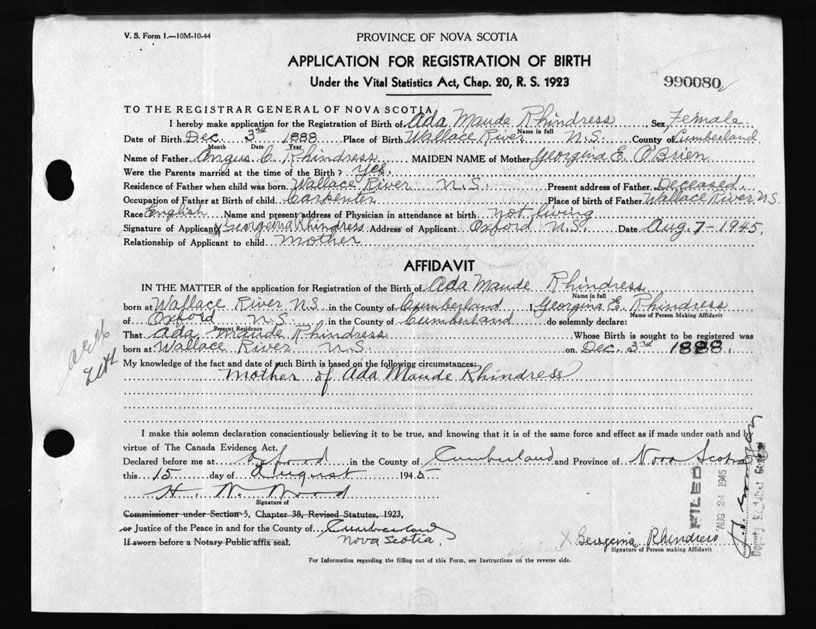 V. S. Form 1.—10M-10-44
PROVINCE OF NOVA SCOTIA
APPLICATION FOR REGISTRATION OF BIRTH
Under the Vital Statistics Act, Chap. 20, R. S. 1923
990080
TO THE REGISTRAR GENERAL OF NOVA SCOTIA
I hereby make application for the Registration of Birth of Ada Maude Rhindress Sex Female
Name in full
Date of Birth Dec. 3rd 1888 Place of Birth Wallace River N.S. County of Cumberland
Month Date Year
Name of Father Angus C. Rhindress MAIDEN NAME of Mother Georgena E. O'Brien
Were the Parents married at the time of the Birth? Yes.
Residence of Father when child was born Wallace River N.S. Present address of Father Deceased.
Occupation of Father at Birth of child Carpenter Place of birth of Father Wallace River N.S.
Race English Name and present address of Physician in attendance at birth not living
Signature of Applicant X Georgema Rhindress Address of Applicant Oxford N.S. Date Aug. 7-1945.
Relationship of Applicant to child Mother
AFFIDAVIT
IN THE MATTER of the application for Registration of the Birth of Ada Maude Rhindress
Name in full
born at Wallace River N.S. in the County of Cumberland I, Georgina E. Rhindress
Name of Person Making Affidavit
of Oxford N.S. in the County of Cumberland do solemnly declare:
Present Residence
That Ada Maude Rhindress Whose Birth is sought to be registered was
born at Wallace River N.S. on Dec. 3rd 1888.
My knowledge of the fact and date of such Birth is based on the following circumstances:
Mother of Ada Maude Rhindress
I make this solemn declaration conscientiously believing it to be true, and knowing that it is of the same force and effect as if made under oath and by
virtue of The Canada Evidence Act.
Declared before me at Oxford in the County of Cumberland and Province of Nova Scotia
this 15 day of August 1945
H. W. Wood
Signature of
Commissioner under Section 5, Chapter 38, Revised Statutes, 1923,
or Justice of the Peace in and for the County of Cumberland
If sworn before a Notary Public affix seal. Nova Scotia.
X Georgema Rhindress
Signature of Person making Affidavit
For Information regarding the filling out of this Form, see Instructions on the reverse side.
FILED
AUG 24 1945